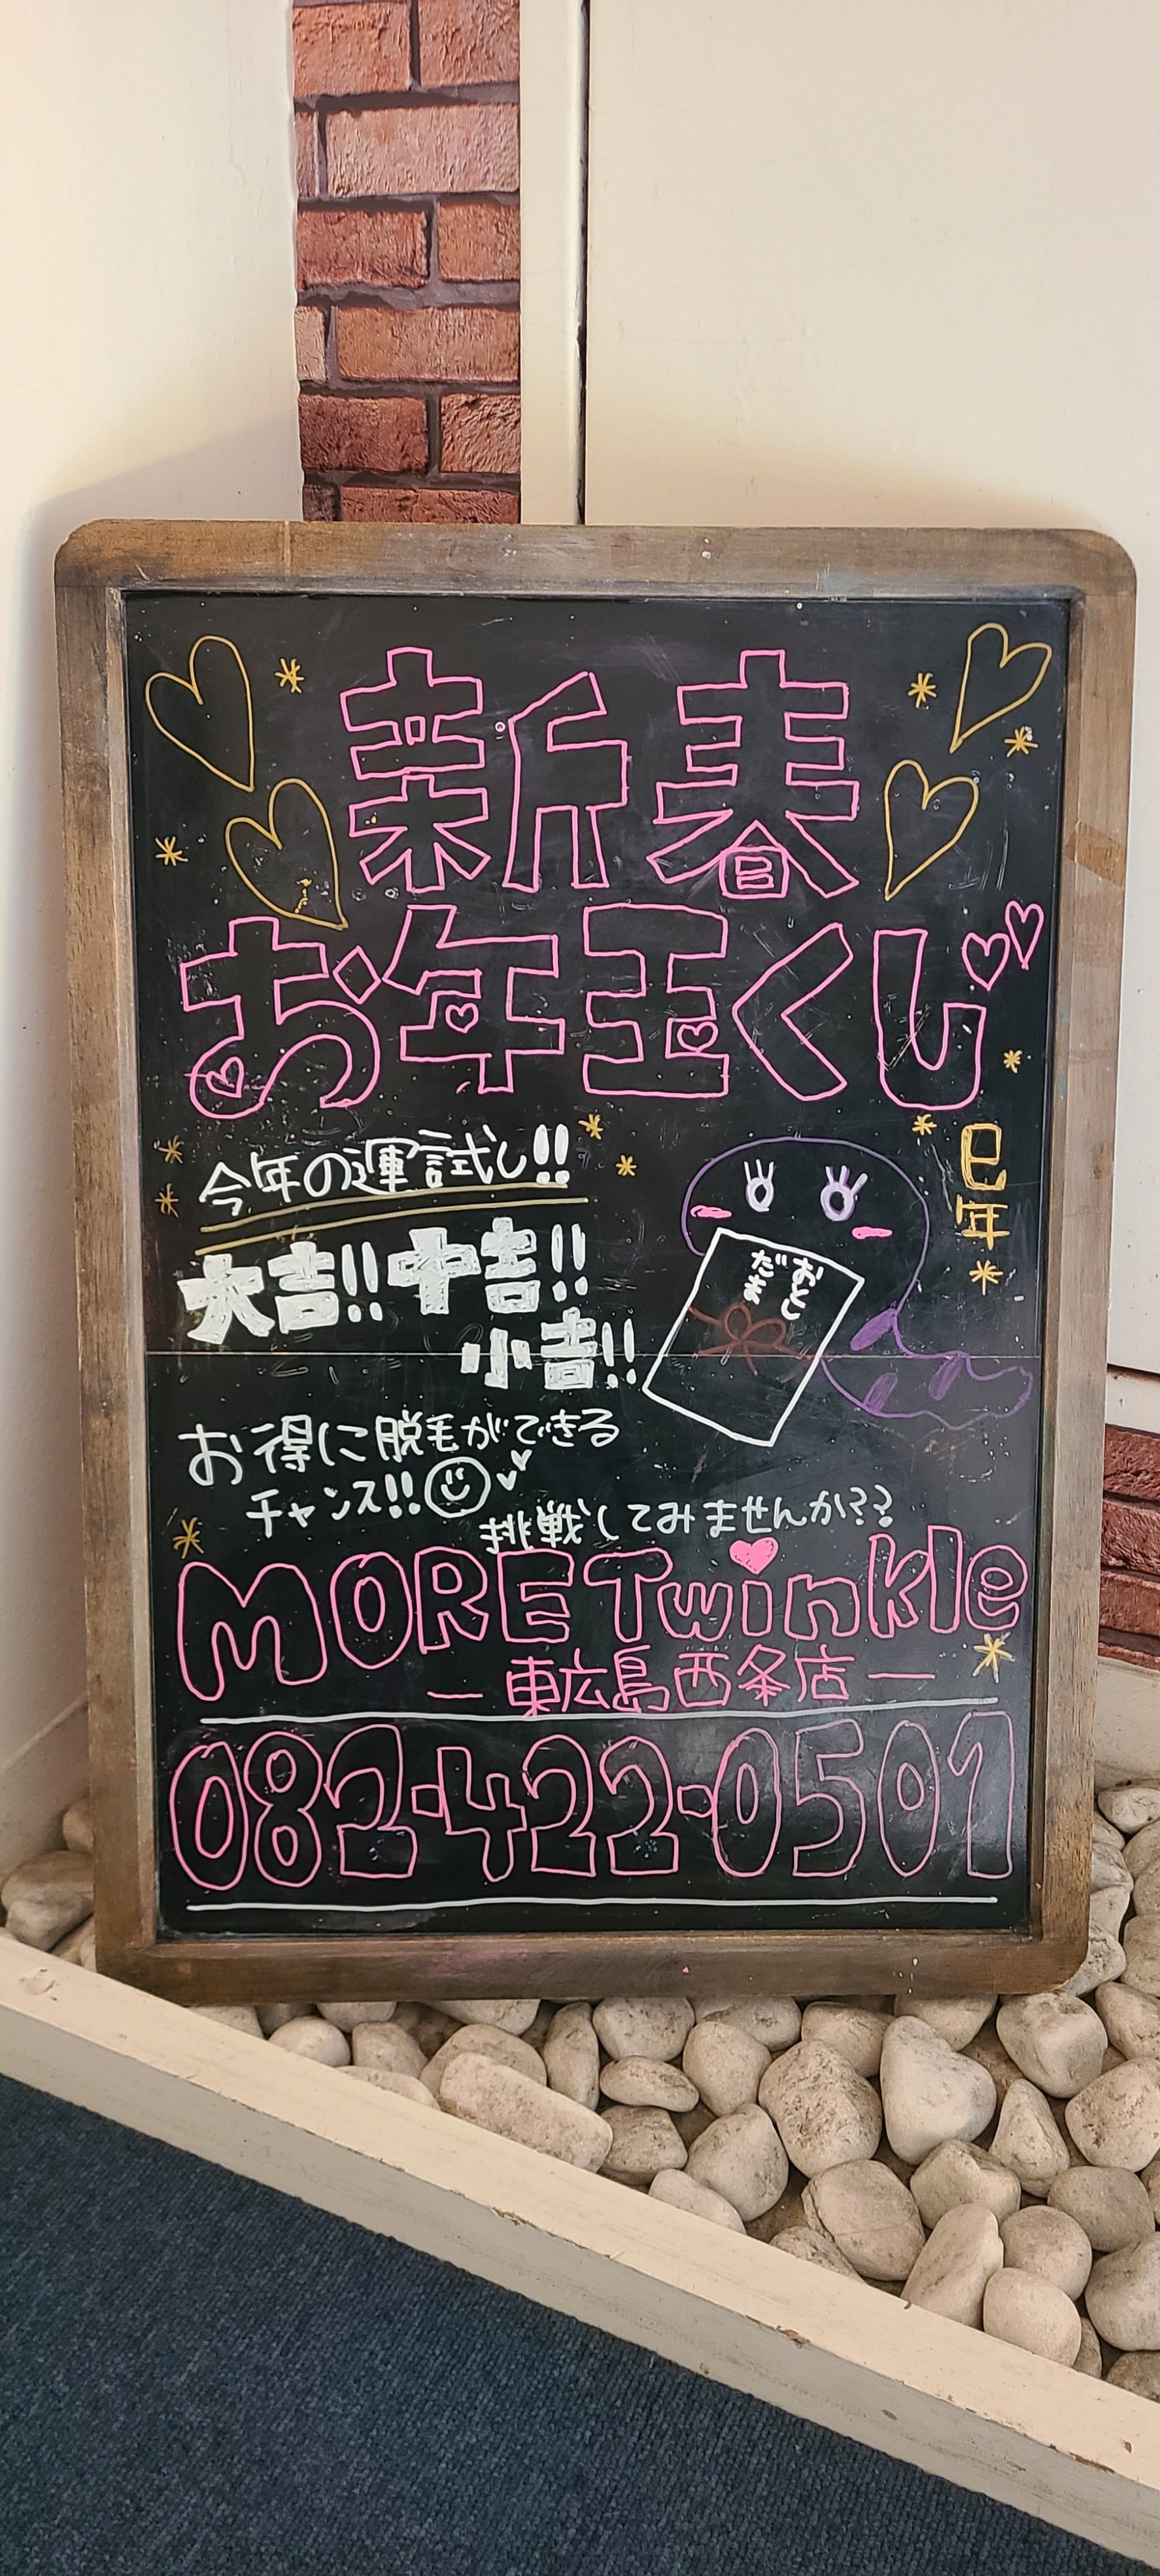 新春
お年玉くじ
今年の運試し!!
大吉!!中吉!!
小吉!!
巳年
おとし
だま
お得に脱毛ができる
チャンス!!
挑戦してみませんか??
MORE Twinkle
ー東広島西条店ー
082-422-0501